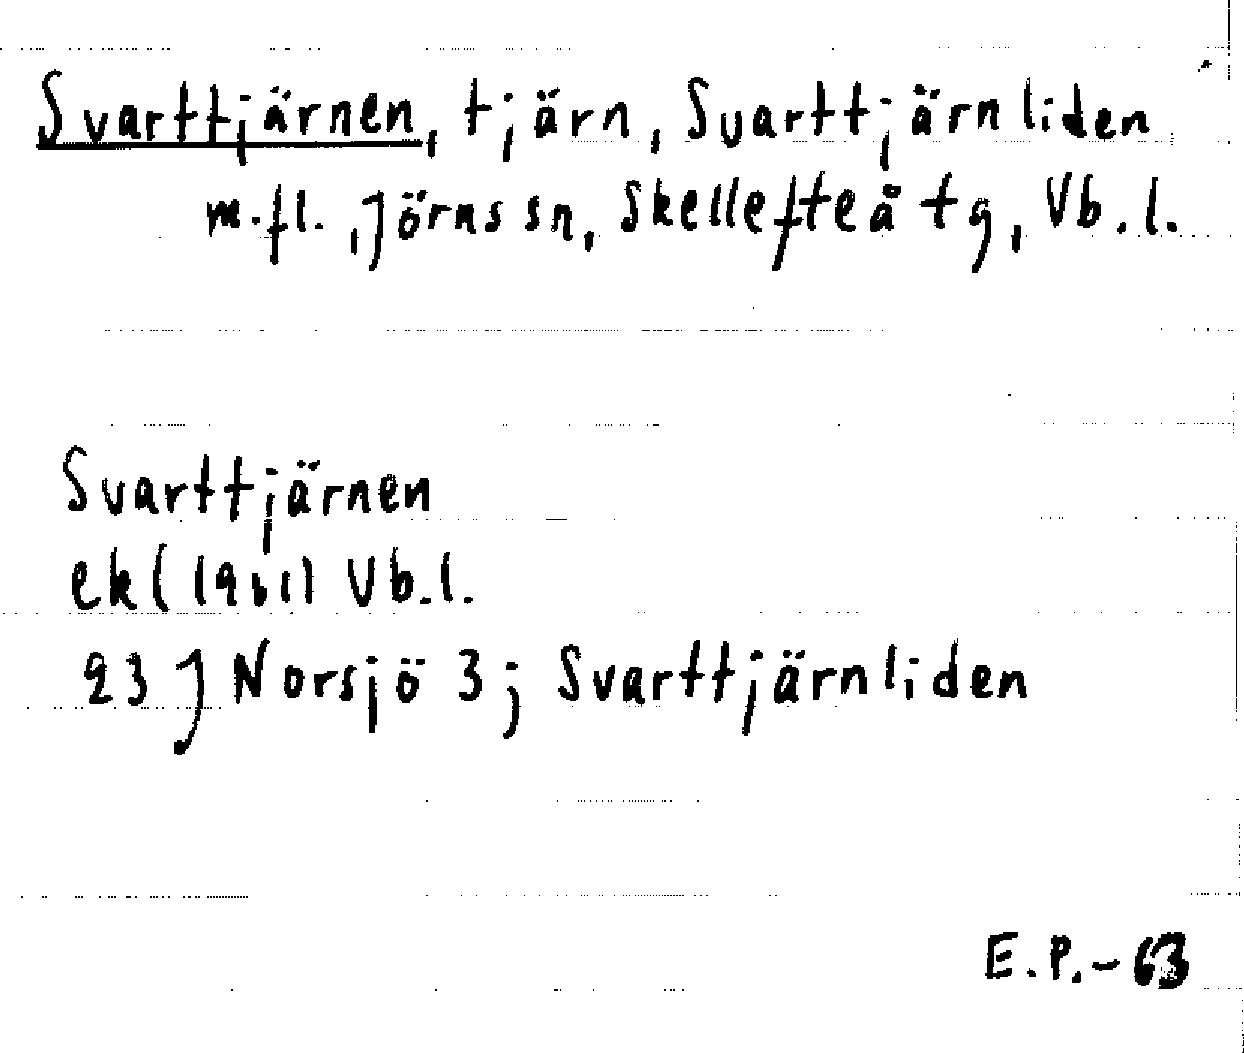 Svarttjärnen, tjärn, Svarttjärnliden
m.fl., Jörns sn, Skellefteå tg, Vb.l.
Svarttjärnen
ek (1961) Vb.l.
23 J Norsjö 3; Svarttjärnliden
E.P.-63